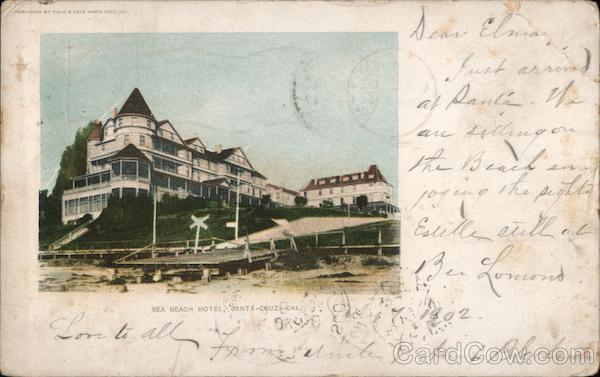 PUBLISHED BY FIELD & COLE SANTA CRUZ, CAL.
Dear Elma,
Just arrived
at Santa. We
are sitting on
the Beach en
joying the sights
Estelle still at
Ben Lomond
SEA BEACH HOTEL, SANTA CRUZ, CAL.
July 1902.
Love to all
From
CardCow.com